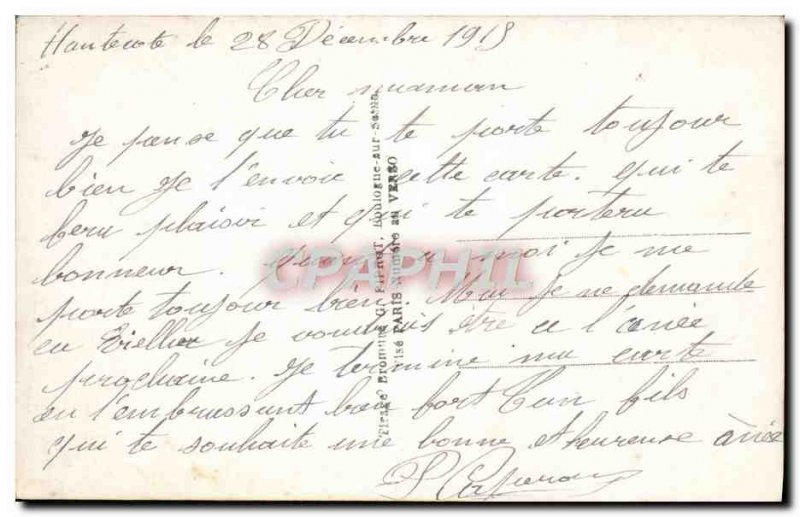 Hautecote le 28 Décembre 1915
Cher maman
Je panse que tu te porte toujour
bien Je t'envoie cette carte. qui te
fera plaisir et qui te portera
bonneur. quand a moi Je me
porte toujour bien Mai Je ne demande
Je voudrais être a l'anée
prochaine. Je termine ma carte
en t'embrassant bien fort Ton fils
qui te souhaite une bonne et heureuse anée
Tirage Bromure G. Boulogne-sur-Seine
Visé PARIS Numéro au VERSO
CPAPHIL